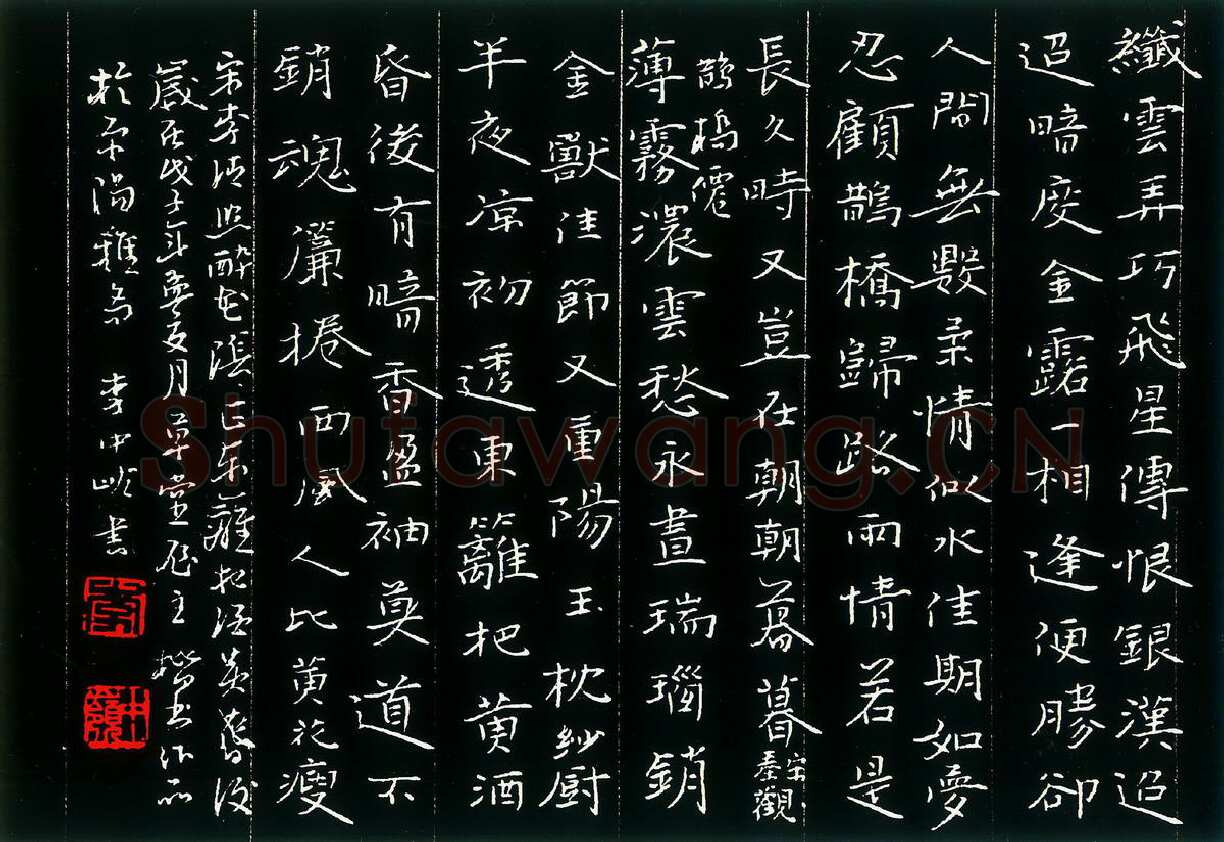 纖雲弄巧飛星傳恨銀漢迢
迢暗度金露一相逢便勝卻
人間無數柔情似水佳期如夢
忍顧鵲橋歸路兩情若是
長久時又豈在朝朝暮暮宋秦觀
鵲橋僊
薄霧濃雲愁永晝瑞瑙銷
金獸佳節又重陽玉枕紗廚
半夜凉初透東籬把黄酒
昏後有暗香盈袖莫道不
銷魂簾捲西風人比黄花瘦
宋李清照醉花陰東籬把酒黄昏後
嵗在戊子年夏月草堂居主書作品
於陽雅斋 李中嶺書
Shufawang.CN